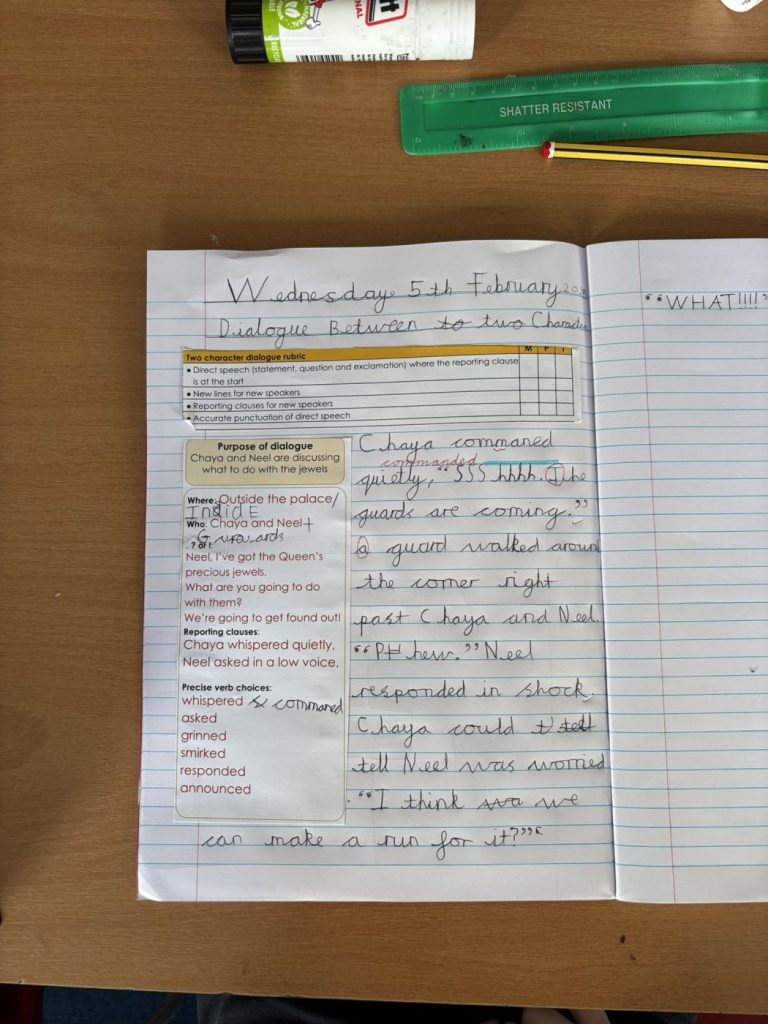 NATURAL
NAL
SHATTER RESISTANT
Wednesday 5th February
Dialogue Between to two Character
Two character dialogue rubric M P I
• Direct speech (statement, question and exclamation) where the reporting clause
is at the start
• New lines for new speakers
• Reporting clauses for new speakers
• Accurate punctuation of direct speech
Purpose of dialogue
Chaya and Neel are discussing
what to do with the jewels
Where: Outside the palace/
INSIDE
Who: Chaya and Neel +
Guards
. ? or !:
Neel, I've got the Queen's
precious jewels.
What are you going to do
with them?
We're going to get found out!
Reporting clauses:
Chaya whispered quietly,
Neel asked in a low voice,
Precise verb choices:
whispered & commaned
asked
grinned
smirked
responded
announced
Chaya commaned
commanded
quietly, "SSShhhh. The
guards are coming."
a guard walked around
the corner right
past Chaya and Neel
"PH hew." Neel
responded in shock.
Chaya could t tell
tell Neel was worried
. "I think wa we
can make a run for it?"
"WHAT!!!!"